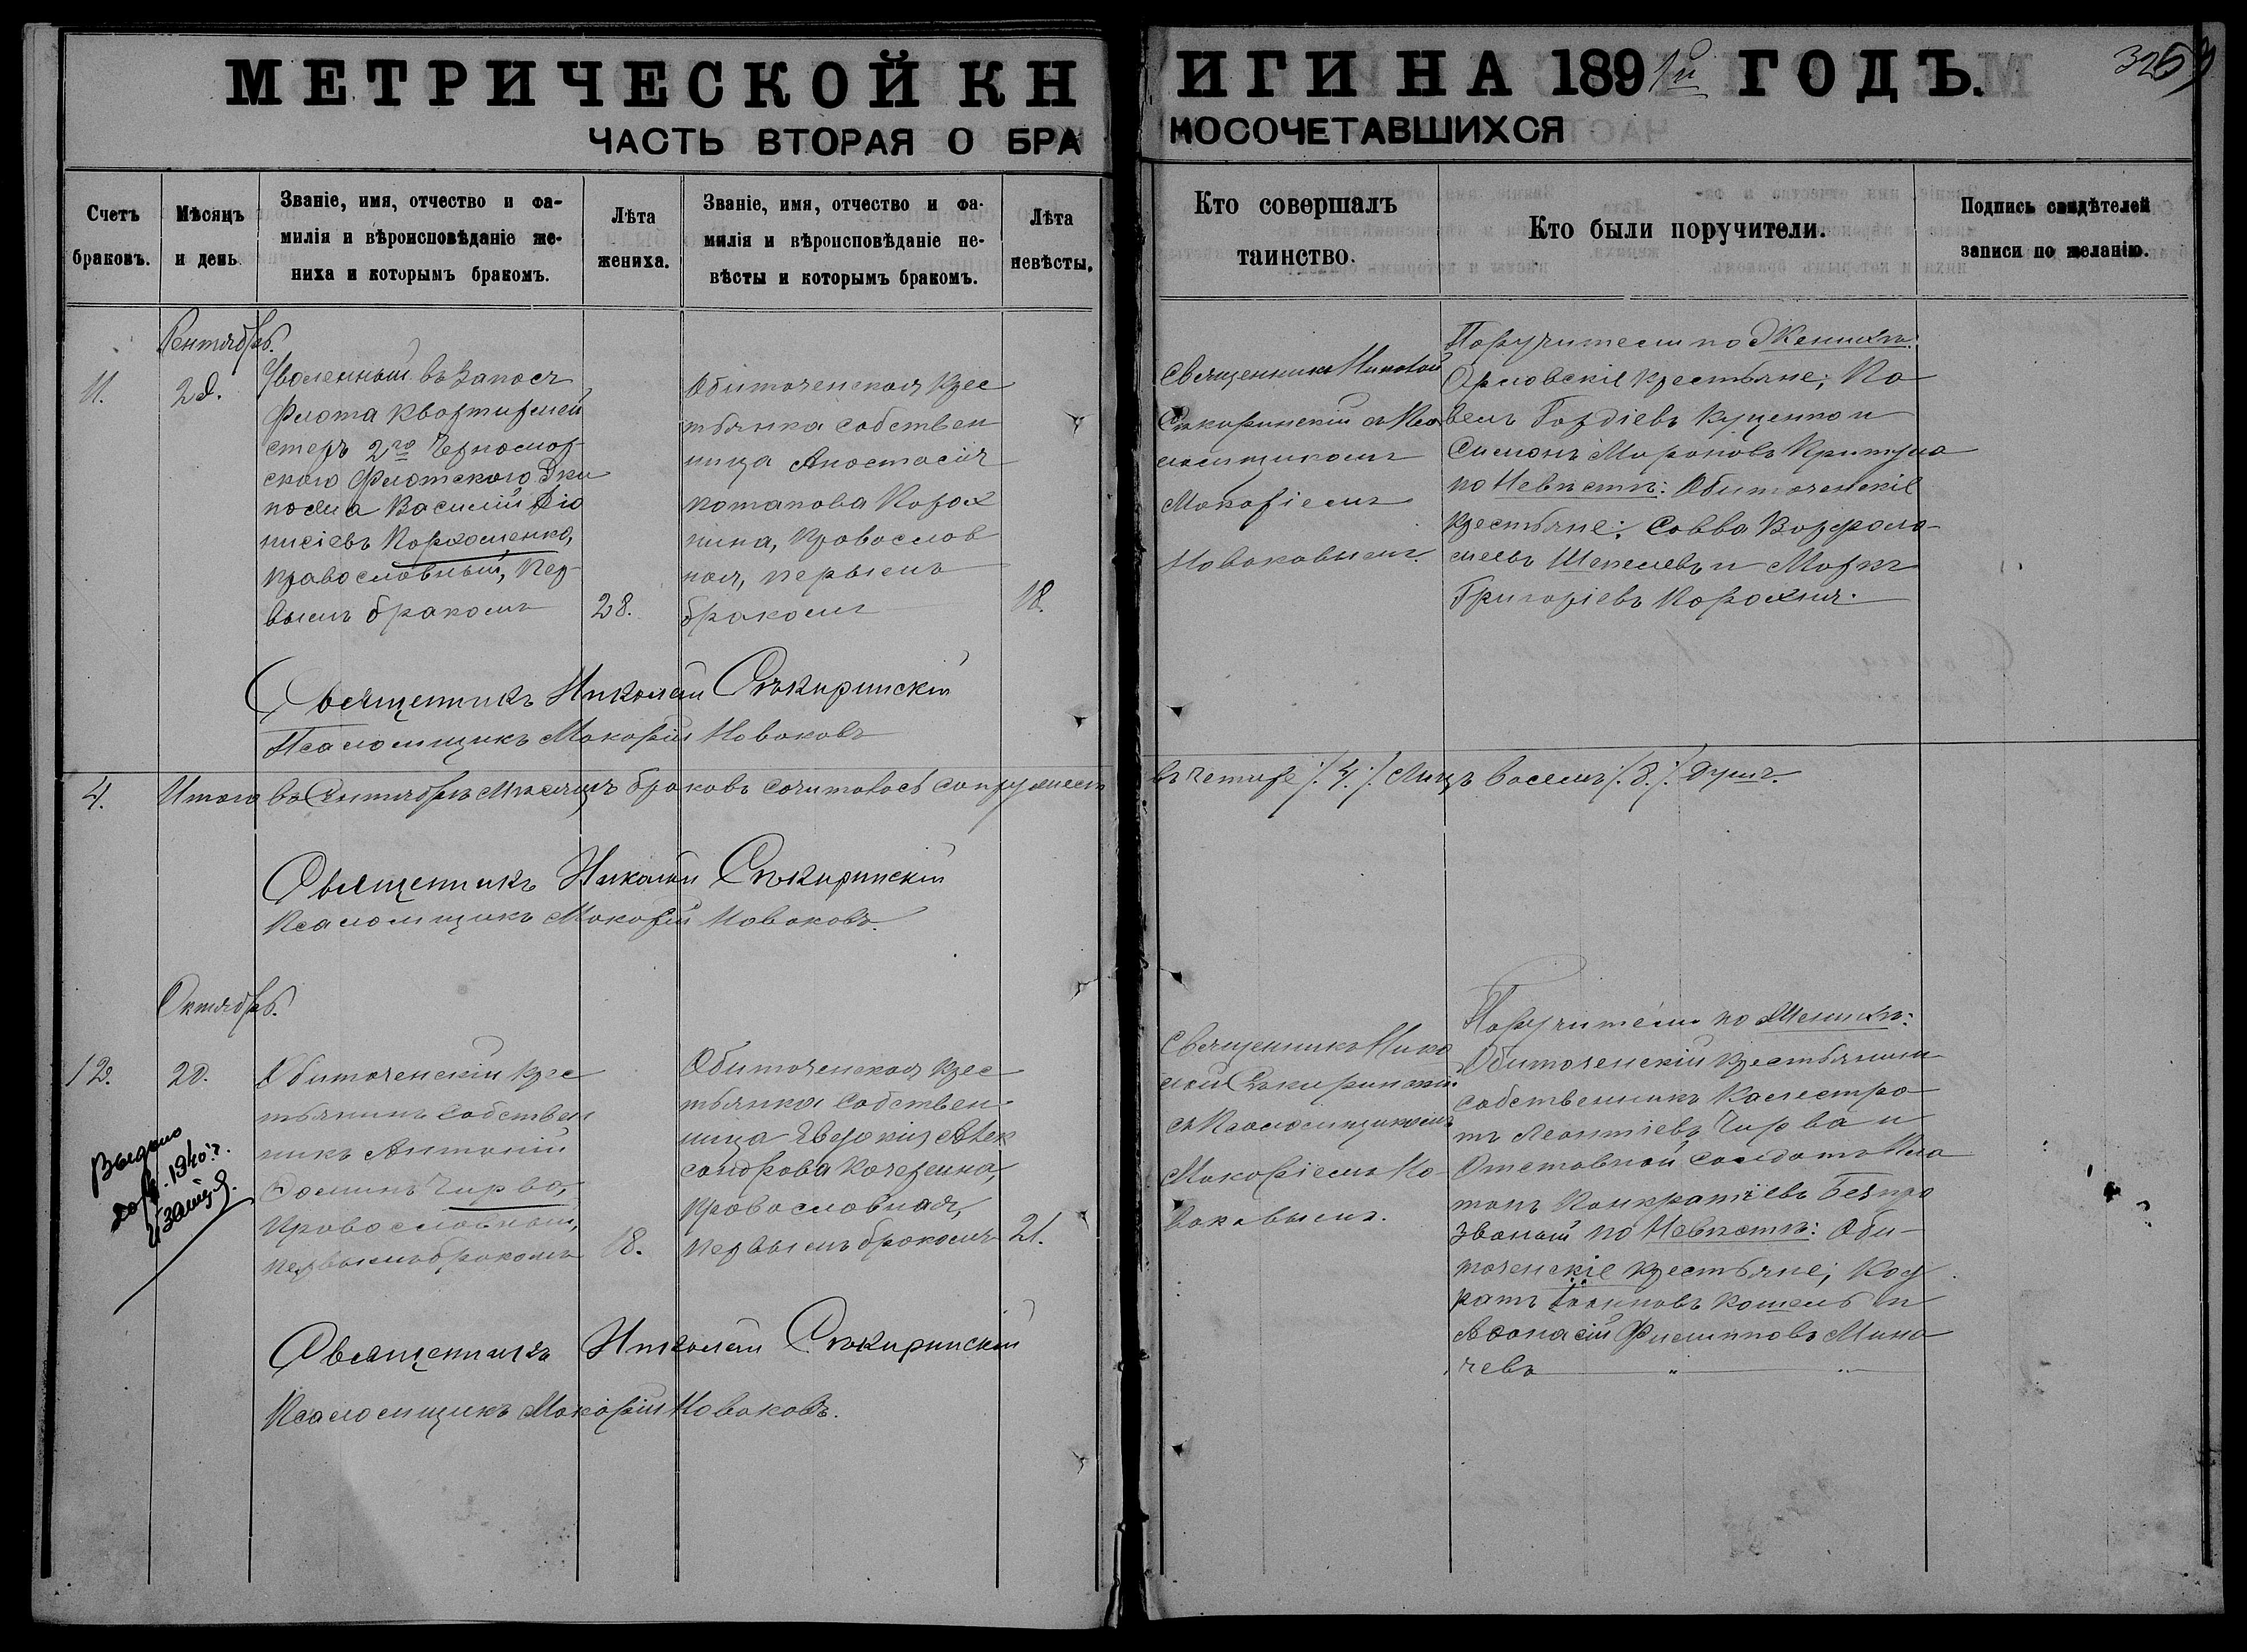 МЕТРИЧЕСКОЙ КНИГИ НА 1891й ГОДЪ.
325
ЧАСТЬ ВТОРАЯ О БРАКОСОЧЕТАВШИХСЯ
Счетъ
браковъ.
Мѣсяцъ
и день
Званіе, имя, отчество и фа-
милія и вѣроисповѣданіе же-
ниха и которымъ бракомъ.
Лѣта
жениха.
Званіе, имя, отчество и фа-
милія и вѣроисповѣданіе не-
вѣсты и которымъ бракомъ.
Лѣта
невѣсты.
Кто совершалъ
таинство.
Кто были поручители.
Подпись свидѣтелей
записи по желанію.
Сентябрь.
11.
Уволенный въ запасъ
флота квартирмей
стеръ 2го Черномор-
скаго Флотскаго Эки
пажа Василій Діо
нисіевъ Пархоменко,
православный, пер-
вымъ бракомъ
28.
Обиточенская крес
тьянка собствен
ница Анастасія
Потапова Корох
нина, православ
ная, первымъ
бракомъ
18.
Священникъ Николай
Сѣкиринскій съ Пса
ломщикомъ
Макаріемъ
Новаковымъ.
Поручители по Женихѣ:
Орловскіе крестьяне; Па
велъ Гордіевъ Куценко и
Симонъ Мароновъ Притула
по Невѣстѣ: Обиточенскіе
крестьяне: Савва Варфоло-
меевъ Шепелевъ и Маркъ
Григоріевъ Корохня.
Священникъ Николай Сѣкиринскій
Псаломщикъ Макарій Новаковъ
4. Итого въ Сентябрѣ мѣсяцѣ браковъ сочиталось супружест
въ четыре /:4:/ лицъ восемь /:8:/ душъ.
Священникъ Николай Сѣкиринскій
Псаломщикъ Макарій Новаковъ.
Октябрь.
12.
20.
Обиточенскій крес
тьянинъ собствен
никъ Антоній
Ѳоминъ Чирва,
православный,
первымъ бракомъ
18.
Обиточенская крес
тьянка собствен
ница Евдокія Алек
сандрова Кочергина,
православная,
первымъ бракомъ
21.
Священникъ Нико
лай Сѣкиринскій
съ Псаломщикомъ
Макаріемъ Но-
ваковымъ.
Поручители по Женихѣ:
Обиточенскій крестьянинъ
собственникъ Калистра-
тъ Леонтіевъ Чирва и
Отставной солдатъ Пла
тонъ Панкратіевъ Безпро
званый по Невѣстѣ: Оби-
точенскіе крестьяне; Код
ратъ Іоанновъ Кошель и
Аѳанасій Филипповъ Мина
чевъ
Выдано
1940 г.
Священникъ Николай Сѣкиринскій
Псаломщикъ Макарій Новаковъ.